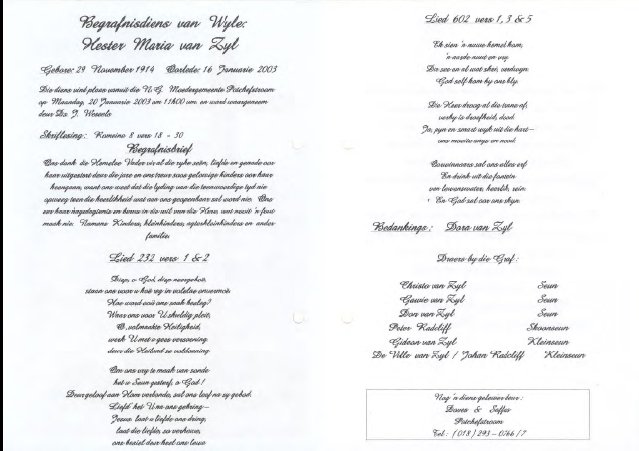 Begrafnisdiens van Wyle:
Hester Maria van Zyl
Gebore: 29 November 1914 Oorlede: 16 Januarie 2003
Die diens vind plaas vanuit die N.G. Moedergemeente Potchefstroom
op Maandag, 20 Januarie 2003 om 11h00 en word waargeneem
deur Ds. J. Wessels
Skriflesing: Romeine 8 vers 18 - 30
Begrafnisbrief
Ons dank die Hemelse Vader vir al die ryke seën, liefde en genade oor
haar uitgestort deur die jare en ons troos soos gelowige kinders oor haar
heengaan, want ons weet dat die lyding van die teenwoordige tyd nie
opweeg teen die heerlikheid wat aan ons geopenbaar sal word nie. Ons
eer haar nagedagtenis en berus in die wil van die Here, wat nooit 'n fout
maak nie. Namens Kinders, kleinkinders, agterkleinkinders en ander
familie.
Lied 232 vers 1 & 2
Diep, o God, diep neergeboë,
staan ons voor u hoë oog in volslae onvermoë.
Hoe word ooit ons saak besleg?
Waar ons voor U skuldig pleit,
O, volmaakte Heiligheid,
werk U met u goes verowering
deur die Heiland se voldoening.
Om ons vry te maak van sonde
het u Seun gesterf, o God!
Deur geloof aan Hom verbonde, sal ons leef na sy gebod.
Liefde het U na ons gebring—
Jesus, laat u liefde ons dring,
laat die liefde, so verhewe,
ons besiel deur heel ons lewe
Lied 602 vers 1, 3 & 5
Ek sien 'n nuwe hemel kom,
'n aarde nuut en vry.
Die see en al wat skei, verdwyn:
God self kom by ons bly.
Die Heer droog al die trane af,
verby is droefheid, dood.
Ja, pyn en smart wyk uit die hart—
ons moeite enge en nood.
Oorwinnaars sal ons alles erf
En drink uit die fontein
van lewenswater, heerlik, rein:
En God sal oor ons skyn.
Bedankings: Dora van Zyl
Draers by die Graf:
Christo van Zyl Seun
Gawie van Zyl Seun
Don van Zyl Seun
Peter Radcliff Skoonseun
Gideon van Zyl Kleinseun
De Ville van Zyl / Johan Radcliff Kleinseun
Nog 'n diens gelewer deur:
Doves & Saffas
Potchefstroom
Tel: (018) 293 - 0766 / 7